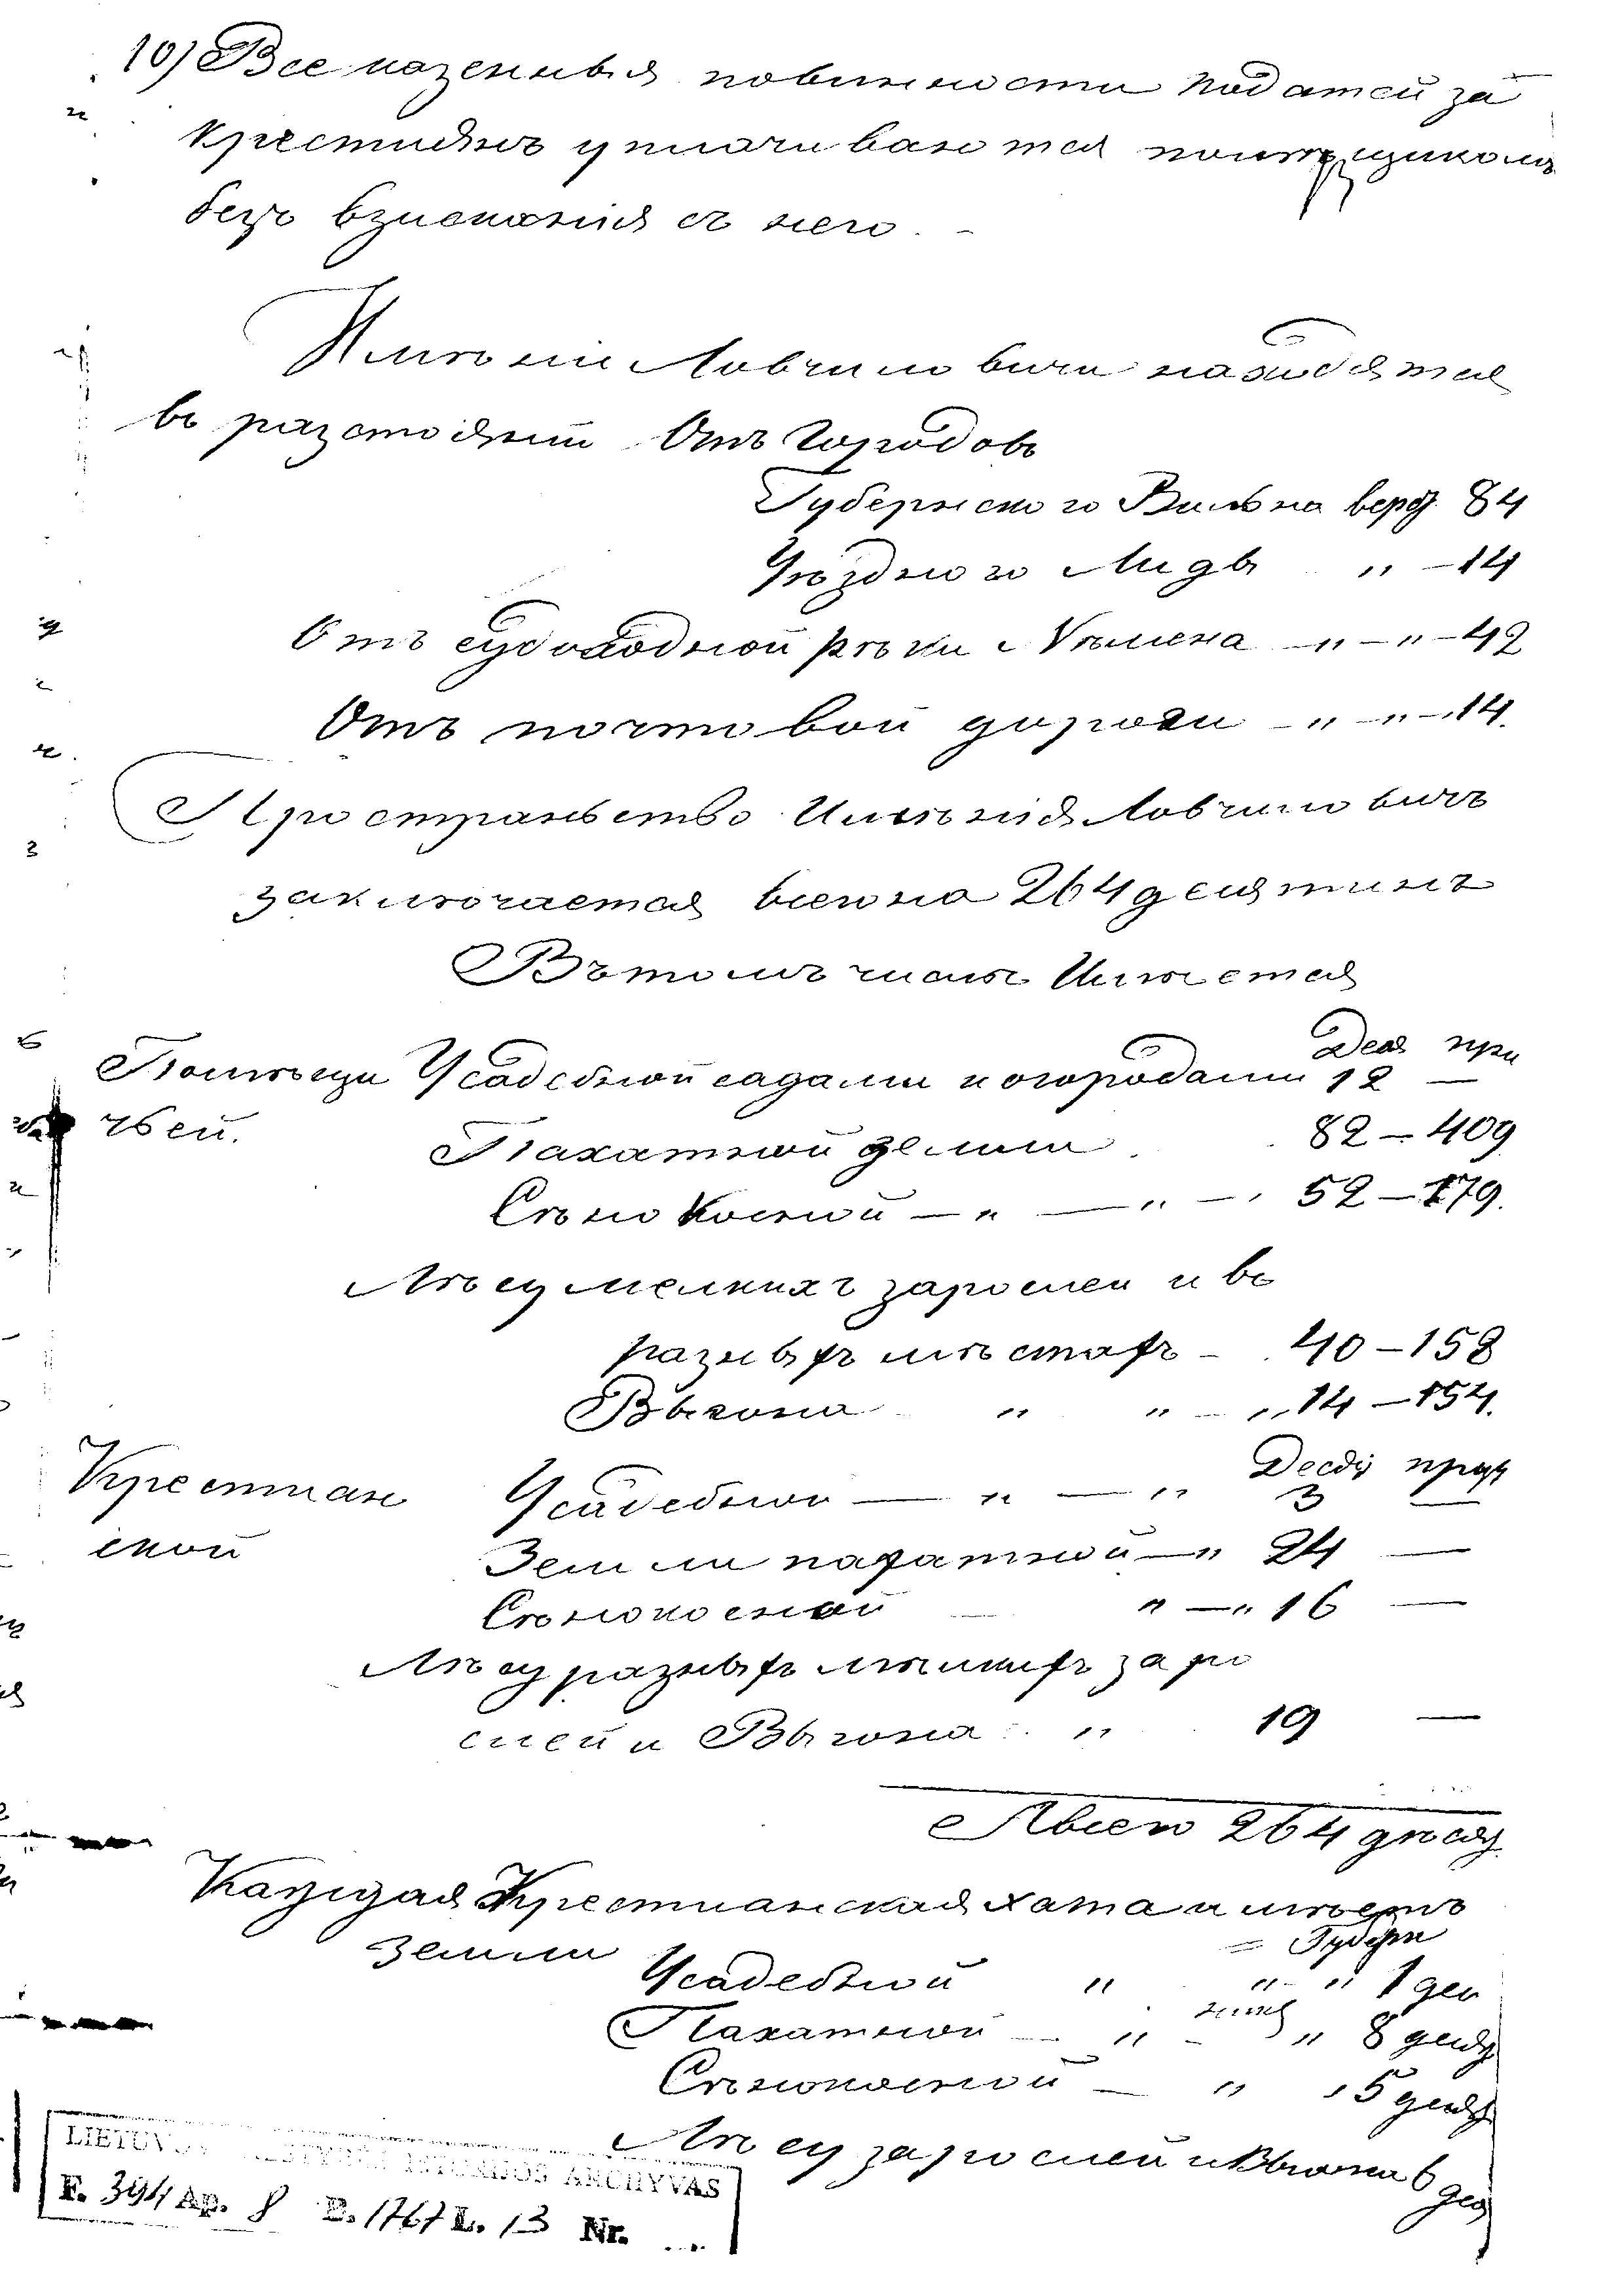 10) Все казенныя повинности податей за
крестиянъ уплачиваются помѣщикомъ
безъ взисканія съ него. -
Имѣніи Ловчиловичи находятся
въ разстояніи Отъ Городовъ
Губернского Вильна верс. 84
Уѣздного Лиды " - 14
Отъ судоходной рѣки Нѣмена - " - " - 42
Отъ почтовой дороги - " - " - 14.
Пространьство Имѣнія Ловчиловичъ
заключается всего на 264 десятинъ
Въ томъ числѣ Имѣется
Деся пру
Помѣщи Усадебной садами и огородами 12 —
чьей. Пахатной земли 82 - 409
Сѣнокосной - " - " - 52 - 179.
Лѣсу мелкихъ зарослей и въ
разныхъ мѣстахъ - 40 - 158
Выгона " " - " 14 - 154.
Десяі пруц
Крестиан Усадебной — " — " 3 —
ской Земли пахатной — " 24 —
Сѣнокосной " — " 16 —
Лѣсу разныхъ мѣлкихъ заро
слей и Выгона " 19 —
Авсего 264 десяд.
Каждая Крестианская хата имѣетъ
земли = Губерн
Усадебной " " " 1 дес
Пахатной — " - " 8 десяд
Сѣнокосной — " 5 десяд
Лѣсу зарослей и Выгона 6 дес
LIETUVOS VALSTYBĖS ISTORIJOS ARCHYVAS
F. 394 Ap. 8 B. 1767 L. 13 Nr.